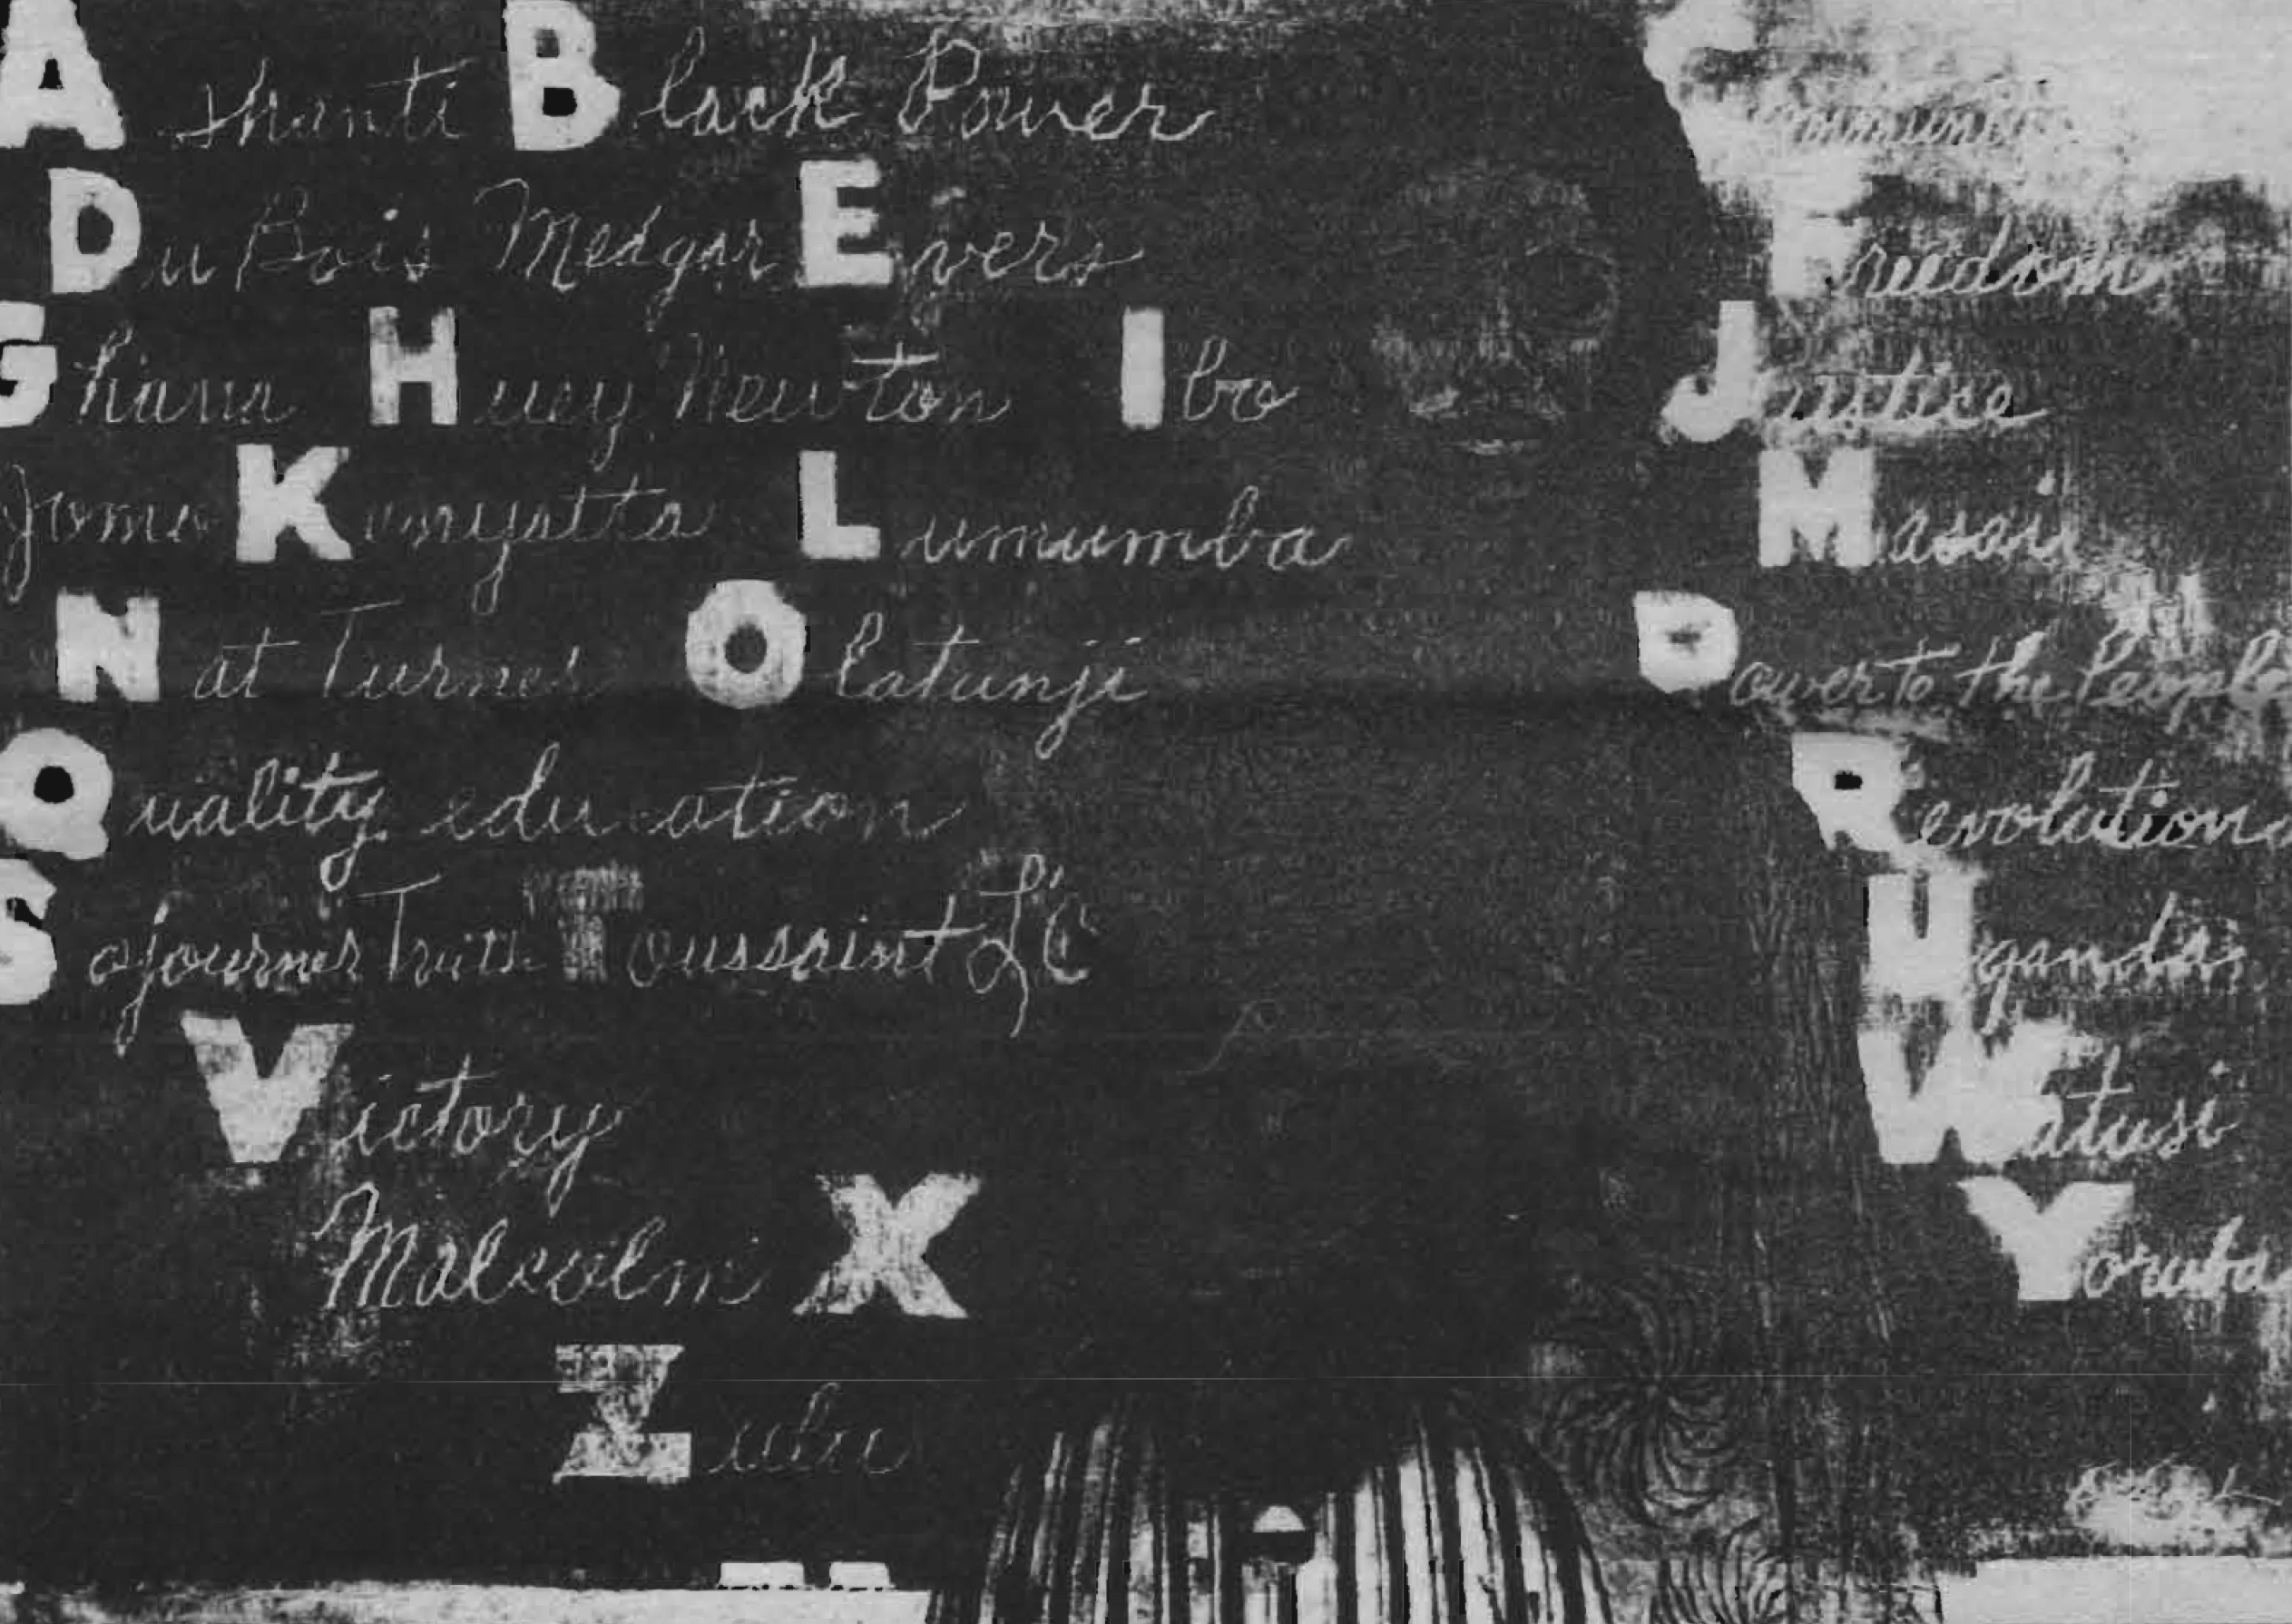 Ashanti Black Power Community
DuBois Medgar Evers Freedom
Ghana Huey Newton Ibo Justice
Jomo Kenyatta Lumumba Masai
Nat Turner Olatunji Power to the People
Quality education Revolution
Sojourner Truth Toussaint L'O Uganda
Victory Watusi
Malcolm X Yoruba
Zulu